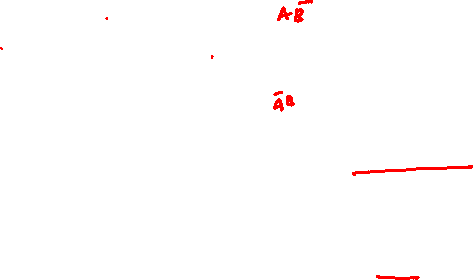 A·B̅
A̅B